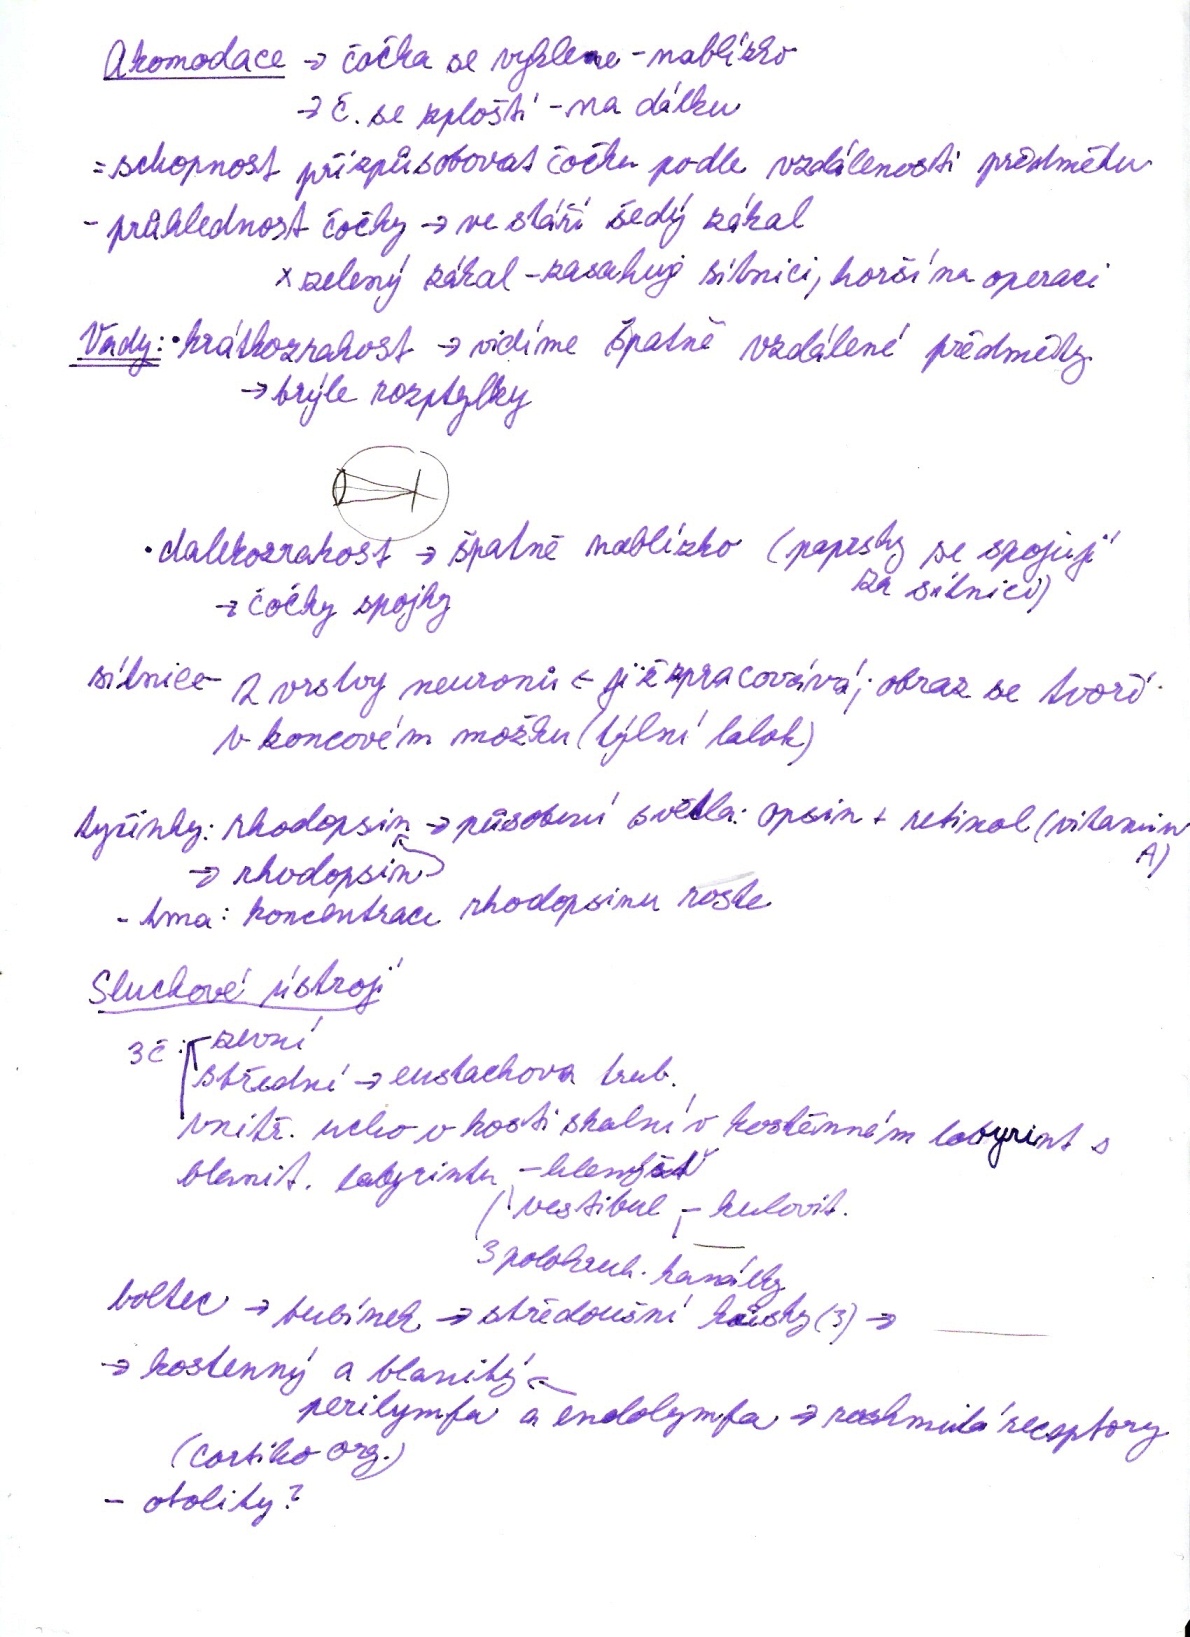 Akomodace → čočka se vyklene - nablízko
→ č. se zploští - na dálku
= schopnost přizpůsobovat čočku podle vzdálenosti předmětu
- průhlednost čočky → ve stáří šedý zákal
x zelený zákal - zasahuje sítnici, horší na operaci
Vady: • krátkozrakost → vidíme špatně vzdálené předměty
→ brýle rozptylky
• dalekozrakost → špatně nablízko (paprsky se spojují
za sítnicí)
→ čočky spojky
sítnice - 2 vrstvy neuronů ← již zpracovává; obraz se tvoří
v koncovém mozku (týlní lalok)
tyčinky: rhodopsin → působení světla: opsin + retinol (vitamin
A)
→ rhodopsin
- tma: koncentrace rhodopsinu roste
Sluchové ústrojí
3 č: zevní
střední → eustachova trub.
vnitř. ucho v kosti skalní v kostěnném labyrint s
blanit. labyrintu - hlemýžď
vestibul - kulovit.
3 polokruh. kanálky
boltec → bubínek → středoušní kůstky (3) →
→ kostenný a blanitý
perilymfa a endolymfa → receptory
(cortiho org.)
- otolity?